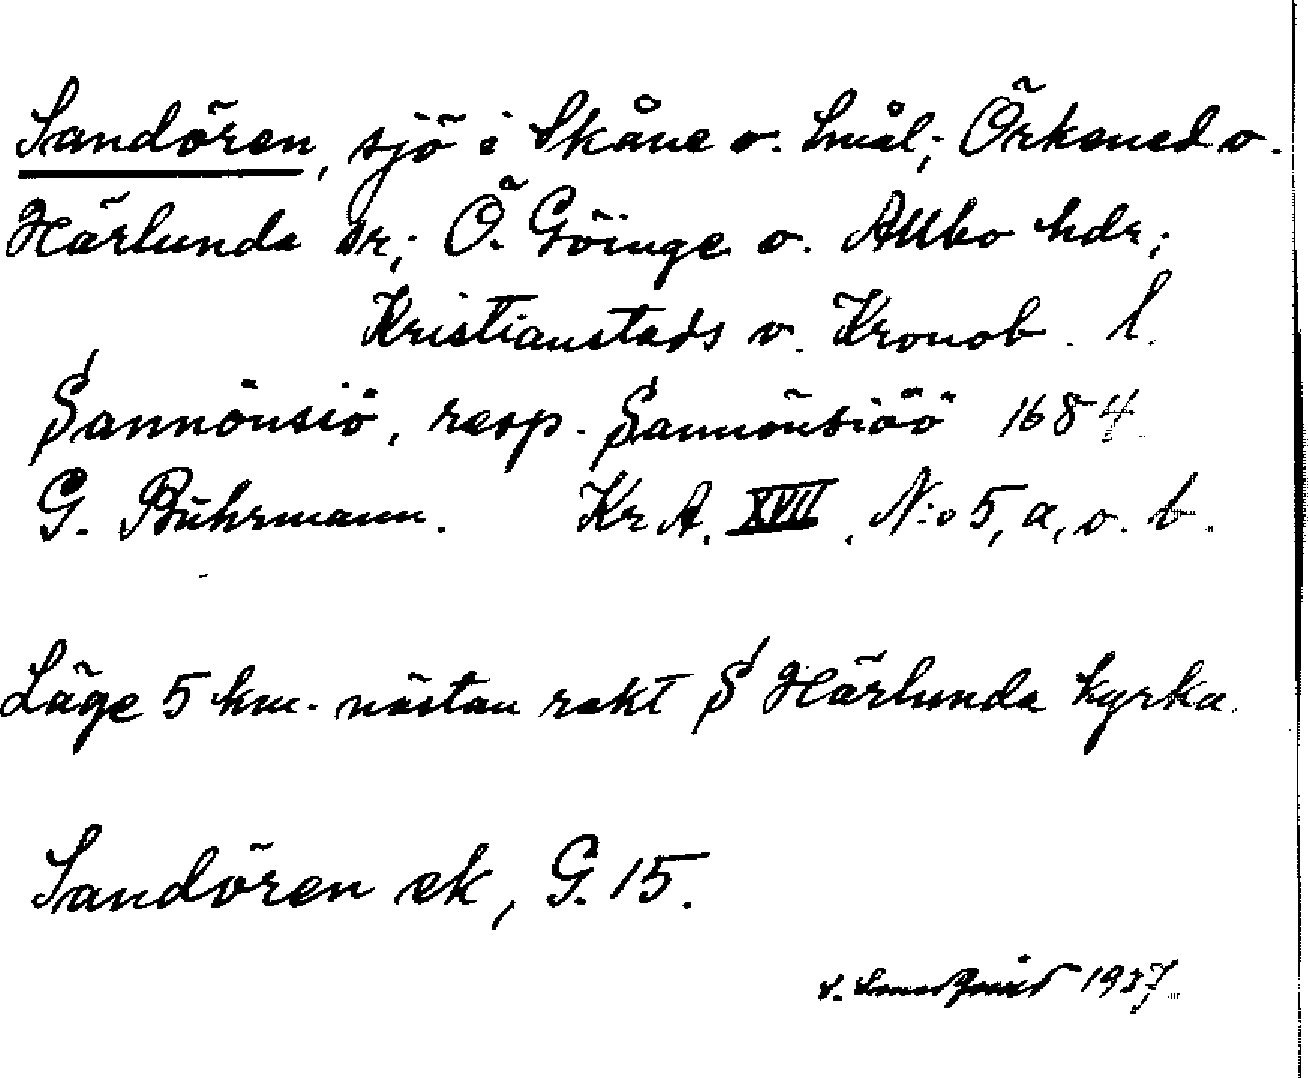 Sandören, sjö i Skåne o. Smål; Örkened o.
Härlunda sr; Ö. Göinge o. Allbo hdr;
Kristianstads o. Kronob. l.
Sannönsiö, resp. Sannönsiöö 1684
G. Bührmann. Kr A. XVII. N:o 5, a, o. b.
Läge 5 km. nästan rakt S Härlunda kyrka.
Sandören ek, G. 15.
1937